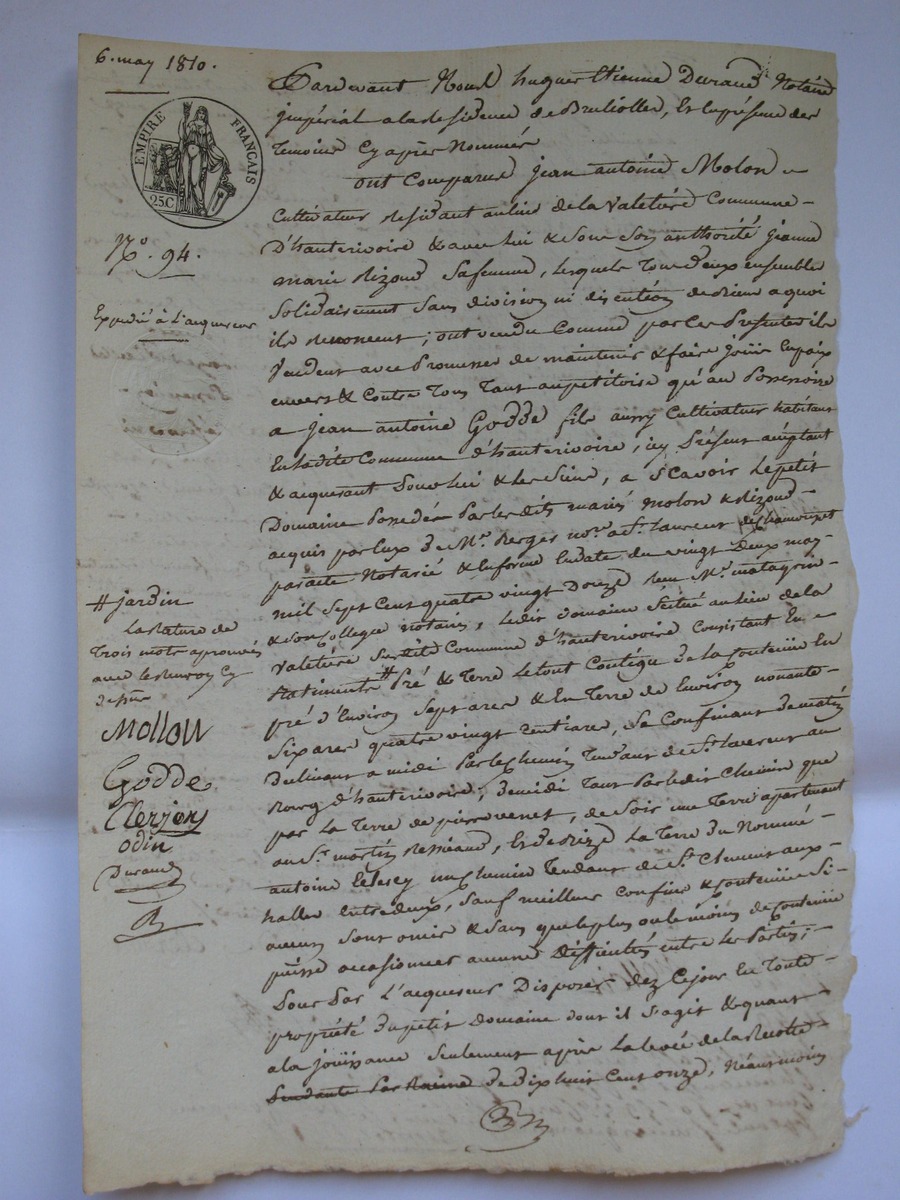 6. may 1810.
EMPIRE FRANÇAIS
25.C
N.º 94.
Expedié à L'acquereur
Pardevant Nous huguer Etienne Durand Notaire
jmpérial ala residence de Brulioller, Et La présence des
Temoins Cy après Nommés
ont Comparus jean antoine Molon
Cultivateur residant aulieu de la Valetiere Commune
D'hauterivoire & avec lui & sous son authorité jeanne
marie Rizoud sa femme, lesquels Tous deux ensemble
Solidairement sans division ni discution de rien a quoi
ils renoncent; ont vendu Comme par les Presentes ils
Vendent avec Promesse de maintenir & faire joüir En paix
envers & Contre Tous Tant au petitoire qu'au Possessoire
a jean antoine Godde fils aussy Cultivateur habitant
En ladite Commune d'hauterivoire, icy Présent acceptant
& acquerant Pour lui & Les Siens, a Scavoir Le petit
Domaine Possedé Par les dits mariés Molon & Rizoud
acquis par Eux de M.e Berger no.re a S.t Laurent de Chamousset
par acte Notarié & En forme En date du vingt Deux may
mil Sept Cent quatre vingt Douze reçu M.e matagrin
& son Collegue notaires, Ledit domaine Scitué au lieu de la
Valetiere Susdite Commune d'hauterivoire Consistant En
Batiments # Pré & Terre Le tout Contigu de la Contenüe En
pré d'Environ Sept ares & En Terre de Environ nonante
Six ares quatre vingt Centiares, Se Confinant de matin
Declinant a midi Par le chemin Tendant de S.t Laurent au
Bourg d'hauterivoire, de midi Tant Par ledit Chemin que
par La Terre de pierre venet, de Soir une Terre apartenant
au S.r martin, Et de bize La Terre du Nommé
antoine un chemin Tendant de S.t Clement aux
halles Entredeux, Sauf meilleurs Confins & Contenüe Si
aucuns Sont omis & Sans que le plus ou le moins de Contenüe
puisse occasionner aucunes Difficultés entre les Parties;
Pour Par L'acquereur Disposer dez Cejour En Toute
propriété du petit Domaine dont il S'agit & quant
a la joüissance Seulement après La levée de la Recolte
Pendante Par Racine de dix huit Cent onze, Néantmoins
# jardin
La rature de
Trois mots aprouvée
avec le Renvoy Cy
dessus
Mollon
Godde
Clerjon
odin
Durand